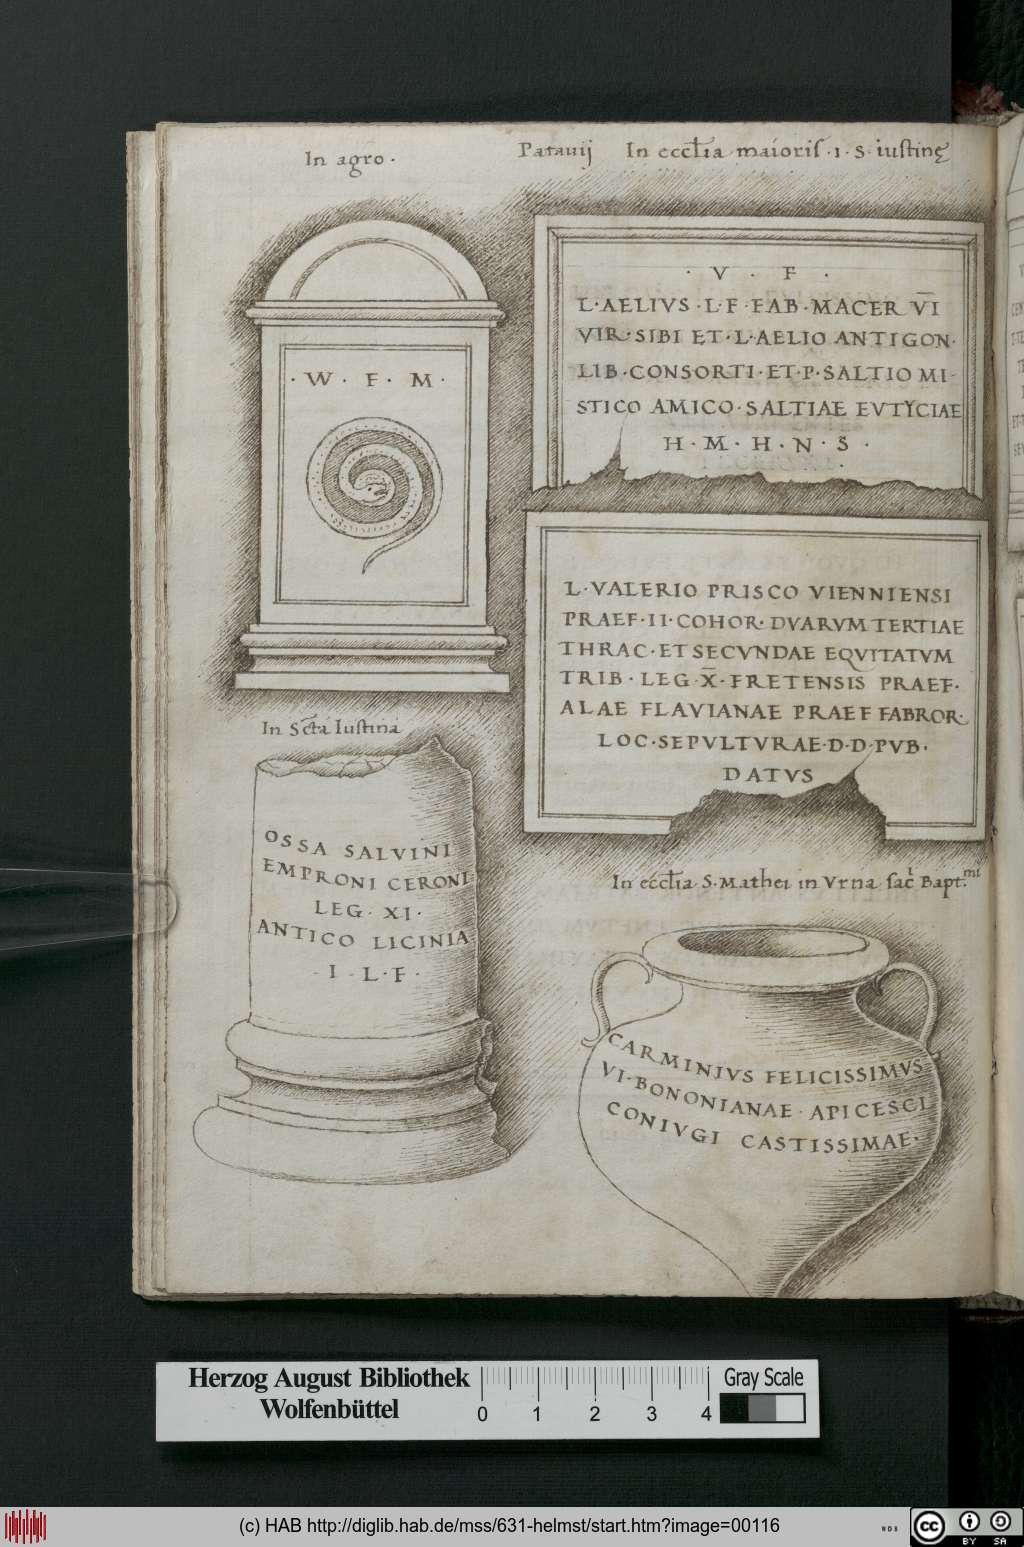 In agro.
Patauij In eccl̄ia maioris .i. S. iustinę
· W · F · M ·
· V · F ·
L·AELIVS·L·F·FAB·MACER V̄I
VIR·SIBI ET·L·AELIO ANTIGON·
LIB·CONSORTI·ET·P·SALTIO MI-
STICO AMICO·SALTIAE EVTYCIAE
H · M · H · N · S ·
L·VALERIO PRISCO VIENNIENSI
PRAEF·II·COHOR·DVARVM TERTIAE
THRAC·ET SECVNDAE EQVITATVM
TRIB·LEG·X̄·FRETENSIS PRAEF·
ALAE FLAVIANAE PRAEF FABROR·
LOC·SEPVLTVRAE·D·D·PVB·
DATVS
In Sc̄ta Iustina
OSSA SALVINI
EMPRONI CERONI
LEG · XI ·
ANTICO LICINIA
- I - L · F ·
In eccl̄ia S. Mathei in Vrna sac̄ Bapt.mi
CARMINIVS FELICISSIMVS
VI·BONONIANAE·APICESCI
CONIVGI CASTISSIMAE·
Herzog August Bibliothek
Wolfenbüttel
0 1 2 3 4
Gray Scale
(c) HAB http://diglib.hab.de/mss/631-helmst/start.htm?image=00116
WDB
cc BY SA